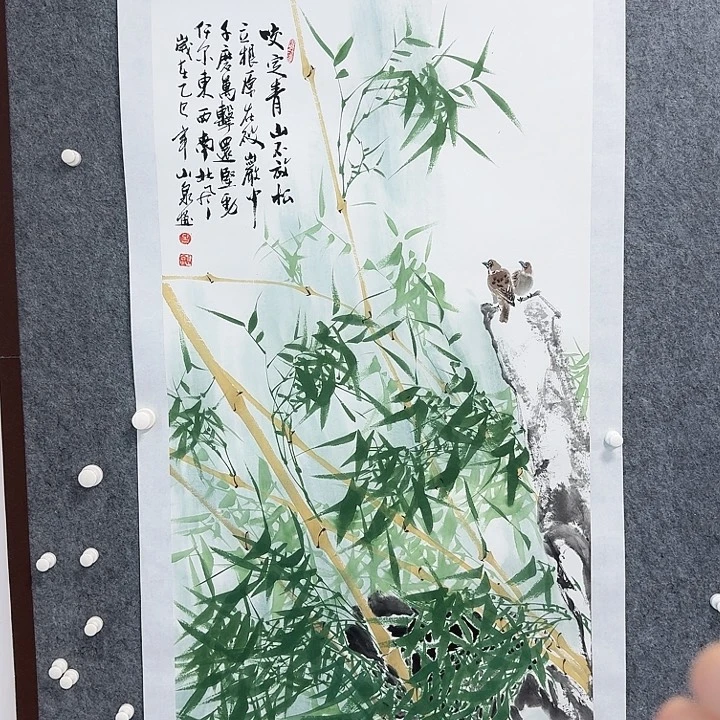 咬定青山不放松
立根原在破巖中
千磨萬擊還堅勁
任尔東西南北风
歲在乙巳年山泉